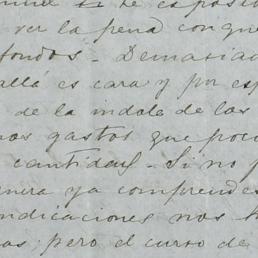 te esposi
ver la pena con que
fondos. - Demasiad
allá es cara y por esp
de la indole de las
nos gastos que poc
cantidad. - Si no p
nera ya comprendes
ndicaciones nos h
as; pero el curso de